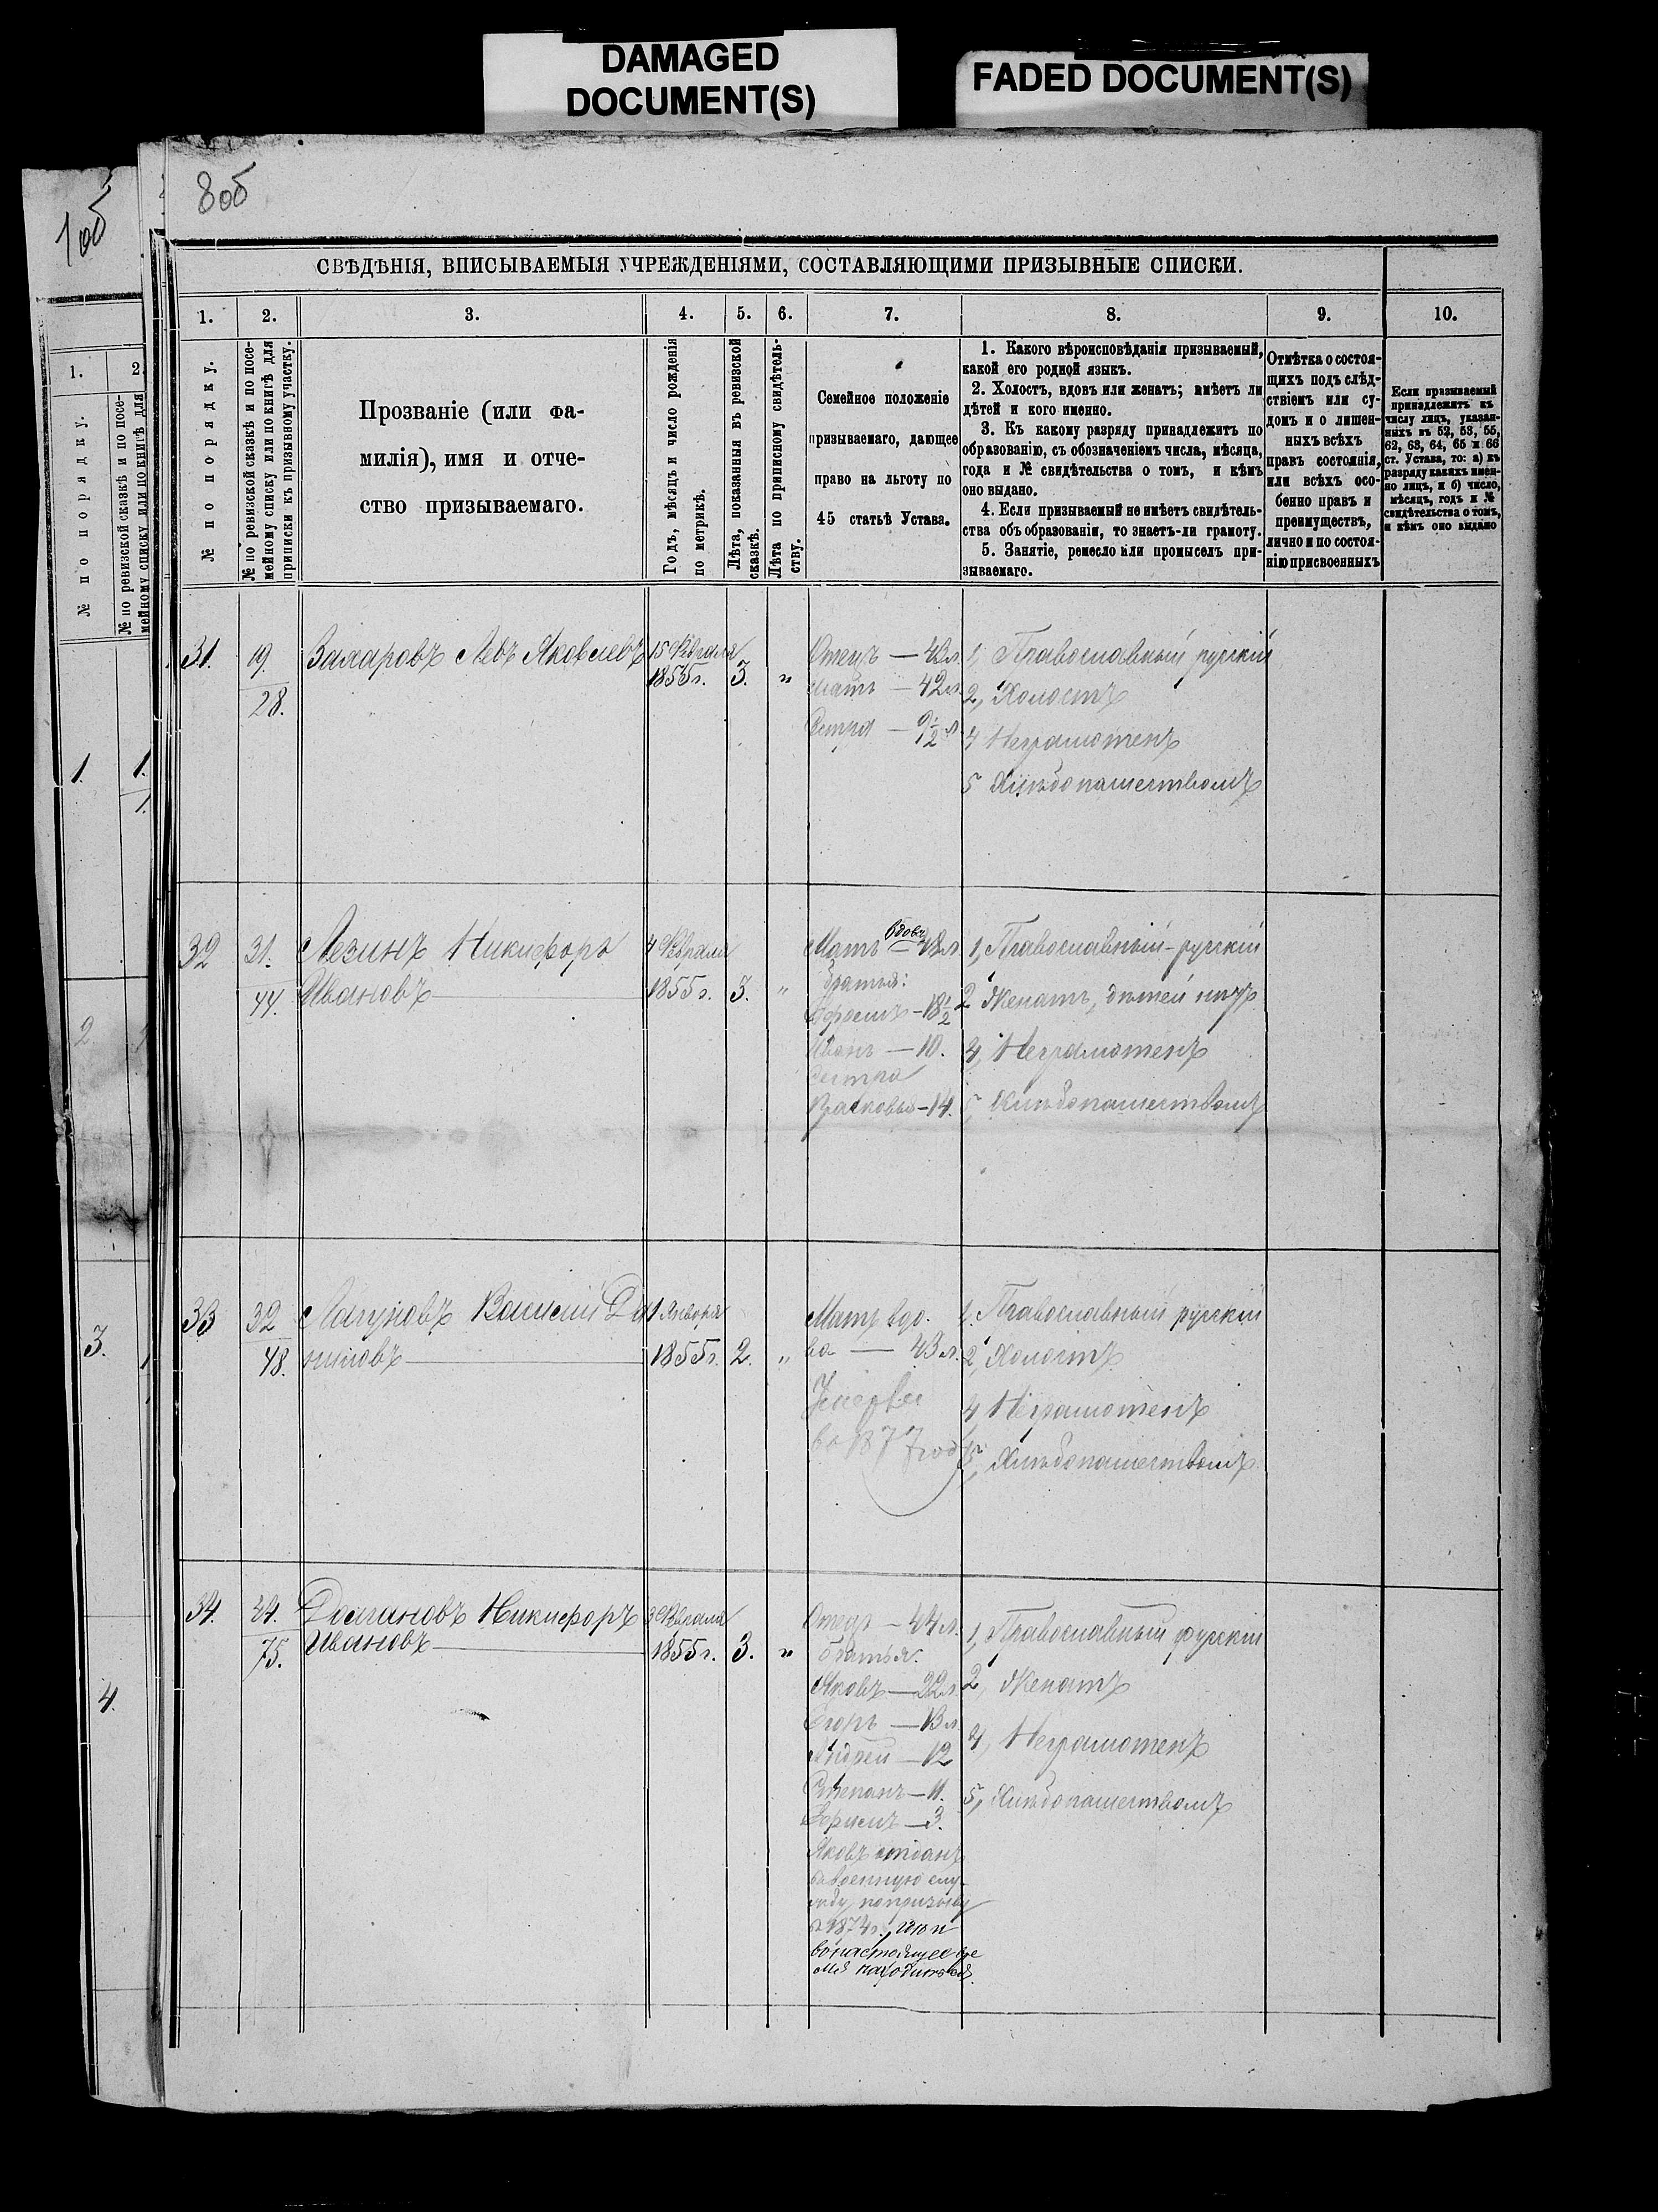 DAMAGED
DOCUMENT(S)
FADED DOCUMENT(S)
1об
8об
СВѢДѢНІЯ, ВПИСЫВАЕМЫЯ УЧРЕЖДЕНІЯМИ, СОСТАВЛЯЮЩИМИ ПРИЗЫВНЫЕ СПИСКИ.
1. 2. 3. 4. 5. 6. 7. 8. 9. 10.
№ по порядку.
№ по ревизской сказкѣ и по посе-
мейному списку или по книгѣ для
приписки къ призывному участку.
Прозваніе (или фа-
милія), имя и отче-
ство призываемаго.
Годъ, мѣсяцъ и число рожденія
по метрикѣ.
Лѣта, показанныя въ ревизской
сказкѣ.
Лѣта по приписному свидѣтель-
ству.
Семейное положеніе
призываемаго, дающее
право на льготу по
45 статьѣ Устава.
1. Какого вѣроисповѣданія призываемый,
какой его родной языкъ.
2. Холостъ, вдовъ или женатъ; имѣетъ ли
дѣтей и кого именно.
3. Къ какому разряду принадлежитъ по
образованію, съ обозначеніемъ числа, мѣсяца,
года и № свидѣтельства о томъ, и кѣмъ
оно выдано.
4. Если призываемый не имѣетъ свидѣтель-
ства объ образованіи, то знаетъ-ли грамоту.
5. Занятіе, ремесло или промыселъ при-
зываемаго.
Отмѣтка о состоя-
щихъ подъ слѣд-
ствіемъ или су-
домъ и о лишен-
ныхъ всѣхъ
правъ состоянія,
или всѣхъ осо-
бенно правъ и
преимуществъ,
лично и по состоя-
нію присвоенныхъ
Если призываемый
принадлежитъ къ
числу лицъ, указан-
ныхъ въ 52, 53, 55,
62, 63, 64, 65 и 66
ст. Устава, то: а) къ
разряду какихъ имен-
но лицъ, и б) число,
мѣсяцъ, годъ и №
свидѣтельства о томъ,
и кѣмъ оно выдано
1. 2.
№ по порядку.
№ по ревизской сказкѣ и по посе-
мейному списку или по книгѣ для
1. 1.
1.
2
3.
4.
31. 19. Захаровъ Левъ Яковлевъ 15 Февраля
28. 1855г. 3. "
Отецъ — 43л.
Мать — 42л.
Сестра — 9 1/2 л
1, Православный русскій
2, Холостъ
4 Неграмотенъ
5 Хлѣбопашествомъ
32 31. Лезинъ Никифоръ 4 Февраля
44. Ивановъ 1855г. 3. "
вдова
Мать — 48л
братья:
Ефремъ - 18 1/2
Иванъ — 10.
Сестра
Прасковья - 14.
1, Православный - русскій
2 Женатъ, дѣтей нѣтъ
4, Неграмотенъ
5, Хлѣбопашествомъ
33 32 Лагуновъ Василій Да 1 Января
48. ниловъ 1855г. 2. "
Мать вдо.
ва — 43л.
во 1877 год
1. Православный русскій
2, Холостъ
4, Неграмотенъ
5, Хлѣбопашествомъ
34. 44. Долгановъ Никифоръ 3 Февраля
75. Ивановъ 1855г. 3. "
Отецъ — 44л.
братья:
Яковъ — 22л.
Егоръ — 13л.
Андрей — 12
Степанъ — 11.
— 3.
Яковъ отданъ
въ военную слу-
жбу по призыву
въ 1874г.
въ настоящее вре
мя находится
1, Православный русскій
2, Женатъ
4, Неграмотенъ
5, Хлѣбопашествомъ